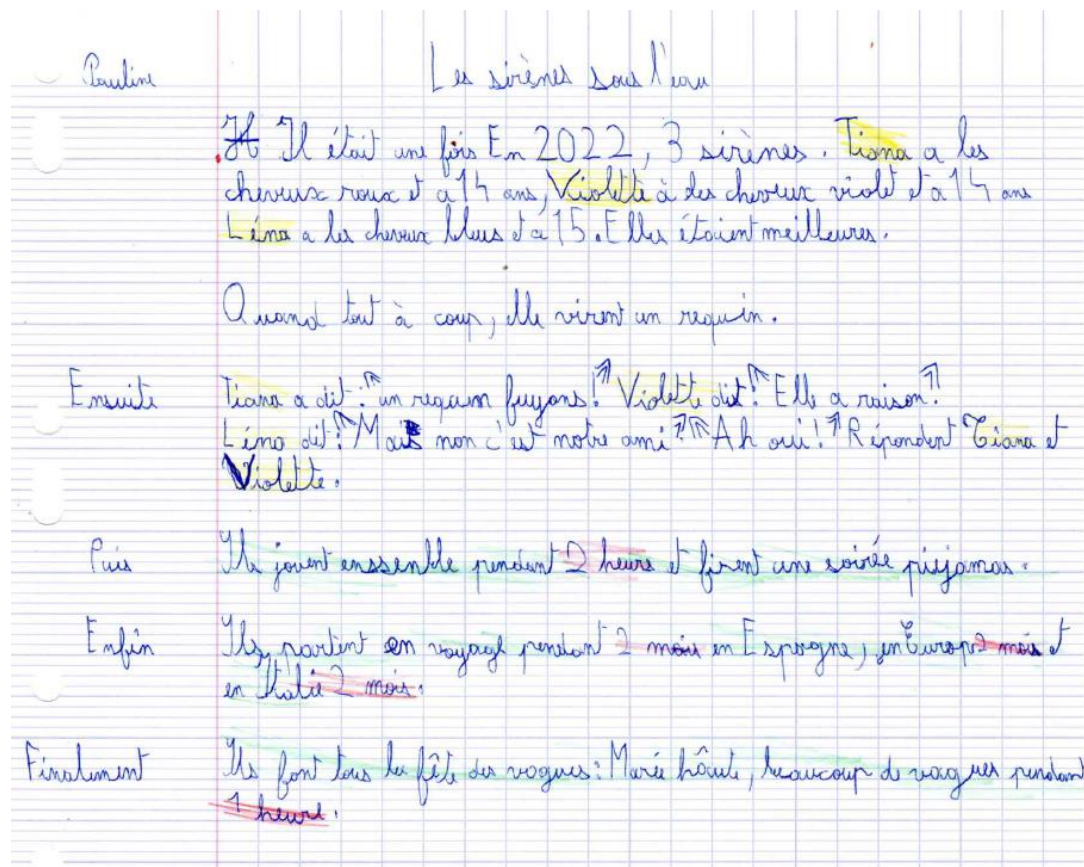 Pauline Les sirènes sous l'eau
Il était une fois En 2022, 3 sirènes. Tiana a les
cheveux roux et a 14 ans, Violette à des cheveux violet et a 14 ans
Léna a les cheveux bleus et a 15. Elles étaient meilleures.
Quand tout à coup, elle virent un requin.
Ensuite Tiana a dit : "un requin fuyons !" Violette dit : "Elle a raison !"
Léna dit : "Mais non c'est notre ami !" "Ah oui !" Répondent Tiana et
Violette.
Puis Ils jouent enssenble pendant 2 heures et firent une soirée pijamas.
Enfin Ils partent en voyage pendant 2 mois en Espagne, en Europe 2 mois et
en Italie 2 mois.
Finalement Ils font tous la fête des vagues : Marée hâute, beaucoup de vagues pendant
1 heure.